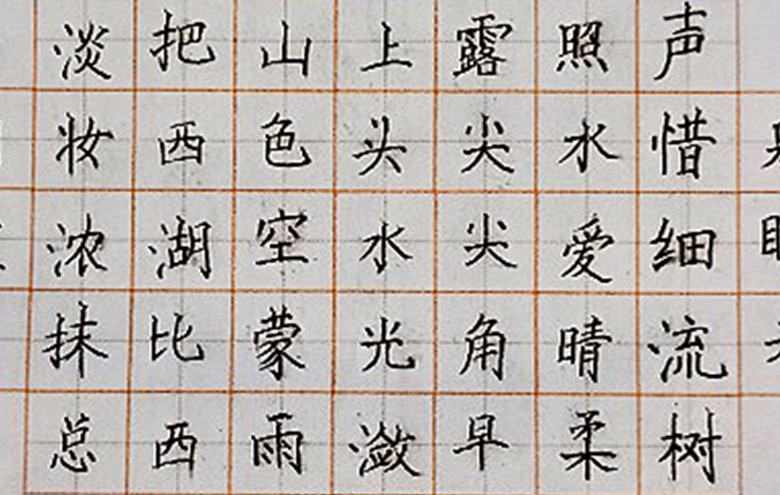 声惜细流树
照水爱晴柔
露尖尖角早
上头水光潋
山色空蒙雨
把西湖比西
淡妆浓抹总